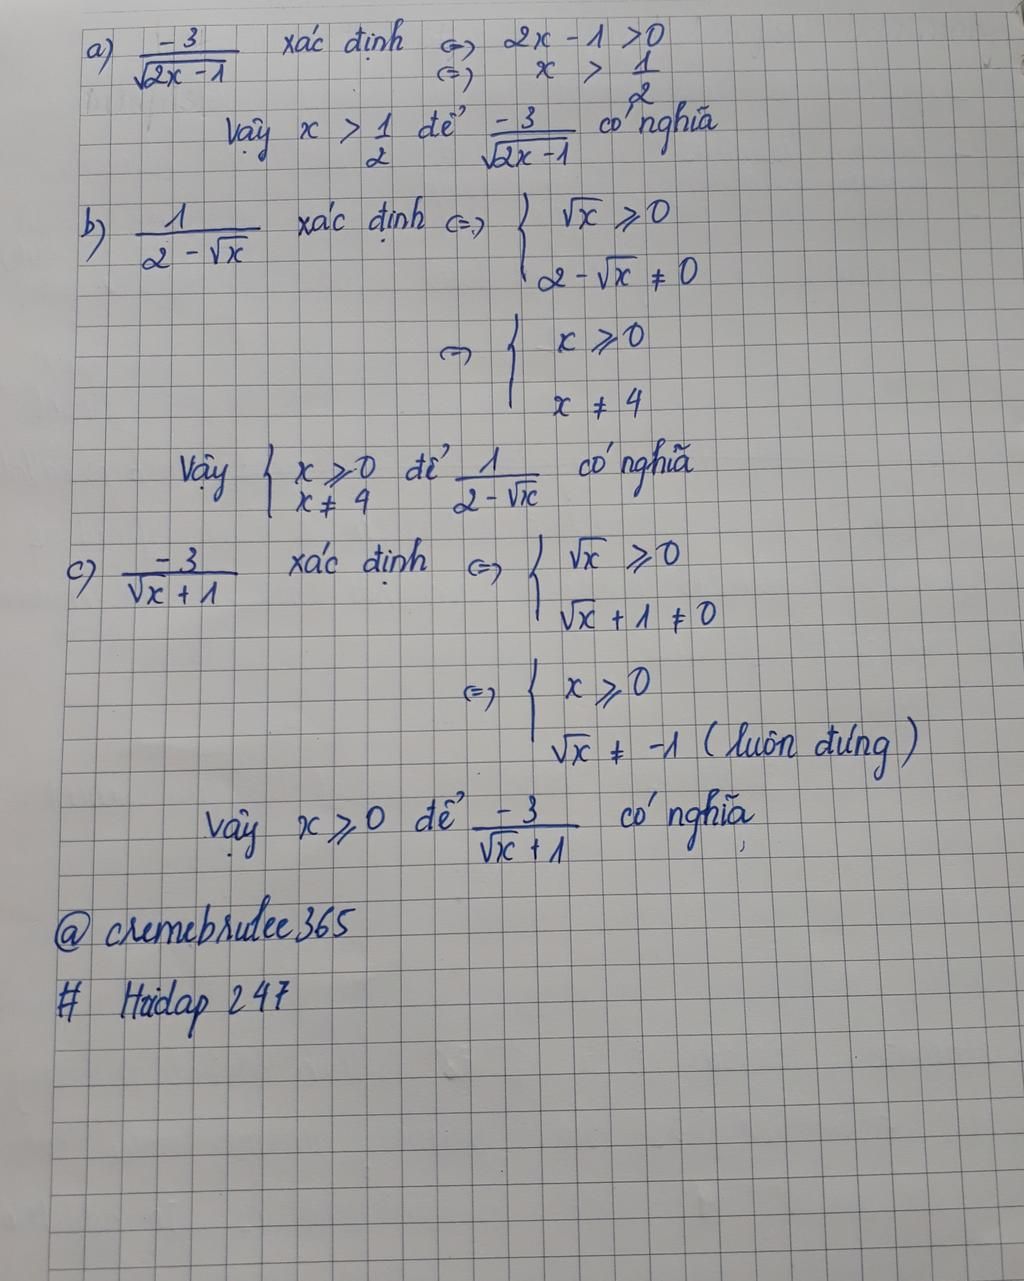 a) -3/√(2x-1) xác định ⇔ 2x - 1 > 0
⇔ x > 1/2
Vậy x > 1/2 để -3/√(2x-1) có nghĩa
b) 1/(2-√x) xác định ⇔ { √x ≥ 0
2-√x ≠ 0
⇔ { x ≥ 0
x ≠ 4
Vậy { x ≥ 0 để 1/(2-√x) có nghĩa
x ≠ 4
c) -3/(√x+1) xác định ⇔ { √x ≥ 0
√x + 1 ≠ 0
⇔ { x ≥ 0
√x ≠ -1 (luôn đúng)
Vậy x ≥ 0 để -3/(√x+1) có nghĩa
@ cremebrulee365
# Hoidap 247